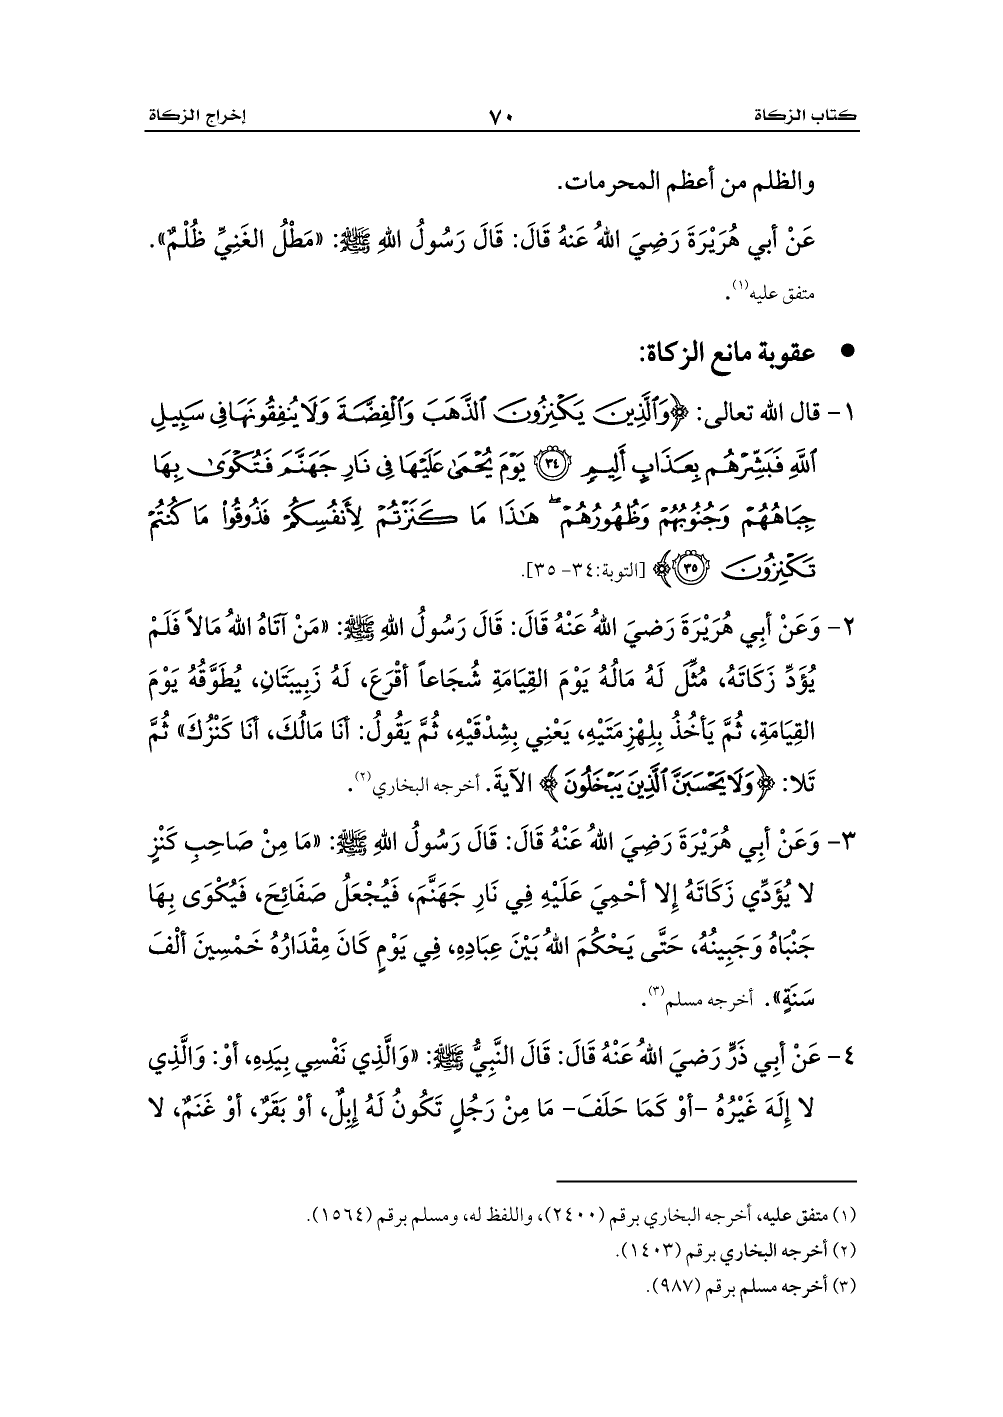 كتاب الزكاة ٧٠ إخراج الزكاة
والظلم من أعظم المحرمات.
عَنْ أبي هُرَيْرَةَ رَضِيَ اللهُ عَنهُ قَالَ: قَالَ رَسُولُ اللهِ ﷺ: «مَطْلُ الغَنِيِّ ظُلْمٌ».
متفق عليه(١).
● عقوبة مانع الزكاة:
١- قال الله تعالى: ﴿وَٱلَّذِينَ يَكْنِزُونَ ٱلذَّهَبَ وَٱلْفِضَّةَ وَلَا يُنفِقُونَهَا فِى سَبِيلِ
ٱللَّهِ فَبَشِّرْهُم بِعَذَابٍ أَلِيمٍ ٣٤ يَوْمَ يُحْمَىٰ عَلَيْهَا فِى نَارِ جَهَنَّمَ فَتُكْوَىٰ بِهَا
جِبَاهُهُمْ وَجُنُوبُهُمْ وَظُهُورُهُمْ ۖ هَـٰذَا مَا كَنَزْتُمْ لِأَنفُسِكُمْ فَذُوقُوا۟ مَا كُنتُمْ
تَكْنِزُونَ ٣٥﴾ [التوبة:٣٤- ٣٥].
٢- وَعَنْ أبِي هُرَيْرَةَ رَضيَ اللهُ عَنْهُ قَالَ: قَالَ رَسُولُ اللهِ ﷺ: «مَنْ آتَاهُ اللهُ مَالاً فَلَمْ
يُؤَدِّ زَكَاتَهُ، مُثِّلَ لَهُ مَالُهُ يَوْمَ القِيَامَةِ شُجَاعاً أقْرَعَ، لَهُ زَبِيبَتَانِ، يُطَوَّقُهُ يَوْمَ
القِيَامَةِ، ثُمَّ يَأخُذُ بِلِهْزِمَتَيْهِ، يَعْنِي بِشِدْقَيْهِ، ثُمَّ يَقُولُ: أنَا مَالُكَ، أنَا كَنْزُكَ» ثُمَّ
تَلا: ﴿وَلَا يَحْسَبَنَّ ٱلَّذِينَ يَبْخَلُونَ﴾ الآيةَ. أخرجه البخاري(٢).
٣- وَعَنْ أبِي هُرَيْرَةَ رَضيَ اللهُ عَنْهُ قَالَ: قَالَ رَسُولُ اللهِ ﷺ: «مَا مِنْ صَاحِبِ كَنْزٍ
لا يُؤَدِّي زَكَاتَهُ إلا أحْمِيَ عَلَيْهِ فِي نَارِ جَهَنَّمَ، فَيُجْعَلُ صَفَائِحَ، فَيُكْوَى بِهَا
جَنْبَاهُ وَجَبِينُهُ، حَتَّى يَحْكُمَ اللهُ بَيْنَ عِبَادِهِ، فِي يَوْمٍ كَانَ مِقْدَارُهُ خَمْسِينَ ألْفَ
سَنَةٍ». أخرجه مسلم(٣).
٤- عَنْ أبِي ذَرٍّ رَضيَ اللهُ عَنْهُ قَالَ: قَالَ النَّبِيُّ ﷺ: «وَالَّذِي نَفْسِي بِيَدِهِ، أوْ: وَالَّذِي
لا إِلَهَ غَيْرُهُ -أوْ كَمَا حَلَفَ- مَا مِنْ رَجُلٍ تَكُونُ لَهُ إِبِلٌ، أوْ بَقَرٌ، أوْ غَنَمٌ، لا
(١) متفق عليه، أخرجه البخاري برقم (٢٤٠٠)، واللفظ له، ومسلم برقم (١٥٦٤).
(٢) أخرجه البخاري برقم (١٤٠٣).
(٣) أخرجه مسلم برقم (٩٨٧).